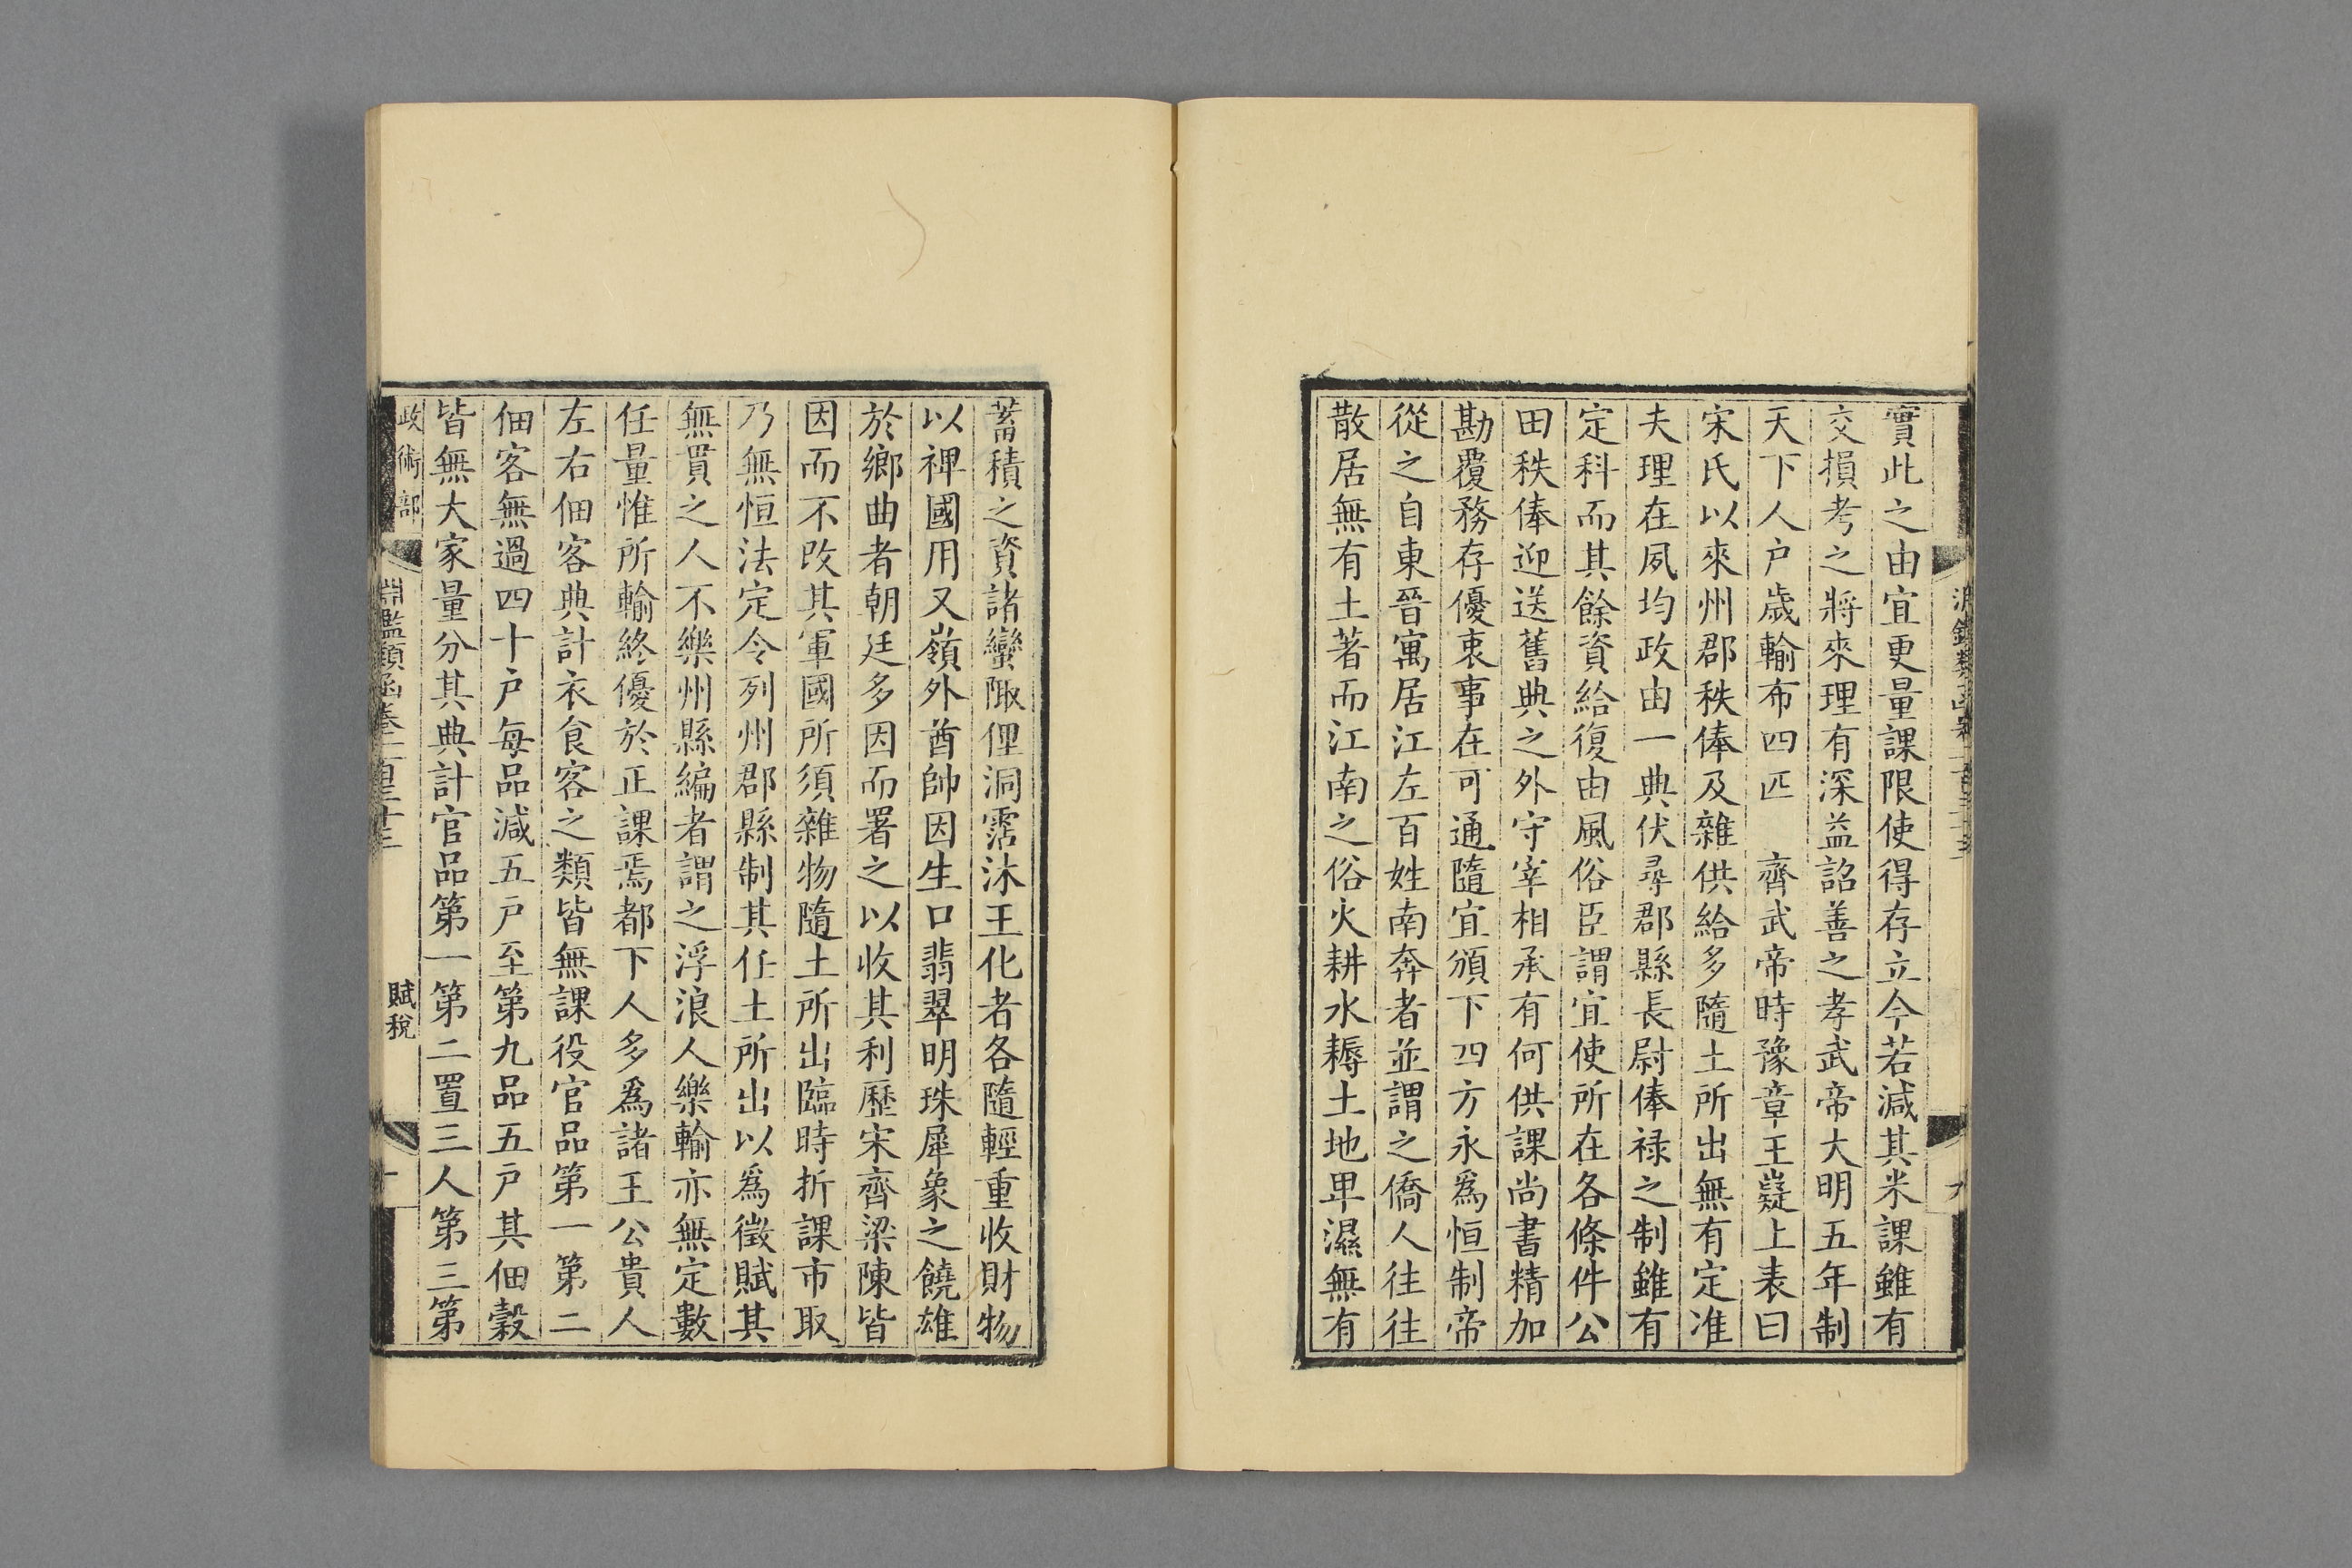 實此之由宜更量課限使得存立今若減其米課雖有
交損考之將來理有深益詔善之孝武帝大明五年制
天下人户歲輸布四匹　齊武帝時豫章王嶷上表曰
宋氏以來州郡秩俸及雜供給多隨土所出無有定准
夫理在夙均政由一典伏尋郡縣長尉俸禄之制雖有
定科而其餘資給復由風俗臣謂宜使所在各條件公
田秩俸迎送舊典之外守宰相承有何供課尚書精加
勘覆務存優衷事在可通隨宜頒下四方永爲恒制帝
從之自東晉寓居江左百姓南奔者並謂之僑人往往
散居無有土著而江南之俗火耕水耨土地卑濕無有
蓄積之資諸蠻陬俚洞霑沐王化者各隨輕重收財物
以裨國用又嶺外酋帥因生口翡翠明珠犀象之饒雄
於鄉曲者朝廷多因而署之以收其利歷宋齊梁陳皆
因而不改其軍國所須雜物隨土所出臨時折課市取
乃無恒法定令列州郡縣制其任土所出以爲徵賦其
無貫之人不樂州縣編者謂之浮浪人樂輸亦無定數
任量惟所輸終優於正課焉都下人多爲諸王公貴人
左右佃客典計衣食客之類皆無課役官品第一第二
佃客無過四十户每品減五户至第九品五户其佃穀
皆無大家量分其典計官品第一第二置三人第三第
政術部
淵鑑類函卷一百三十三
賦稅